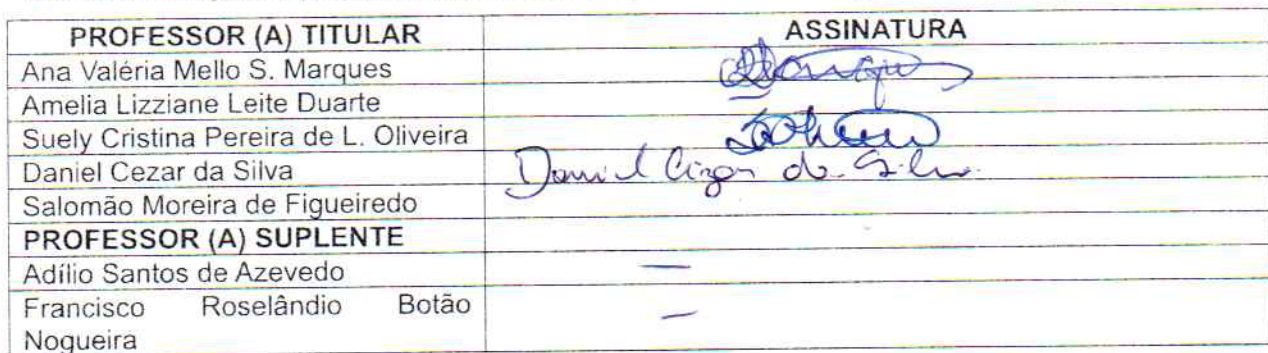 PROFESSOR (A) TITULAR ASSINATURA
Ana Valéria Mello S. Marques
Amelia Lizziane Leite Duarte
Suely Cristina Pereira de L. Oliveira
Daniel Cezar da Silva Daniel Cezar da Silva
Salomão Moreira de Figueiredo
PROFESSOR (A) SUPLENTE
Adílio Santos de Azevedo —
Francisco Roselândio Botão —
Nogueira